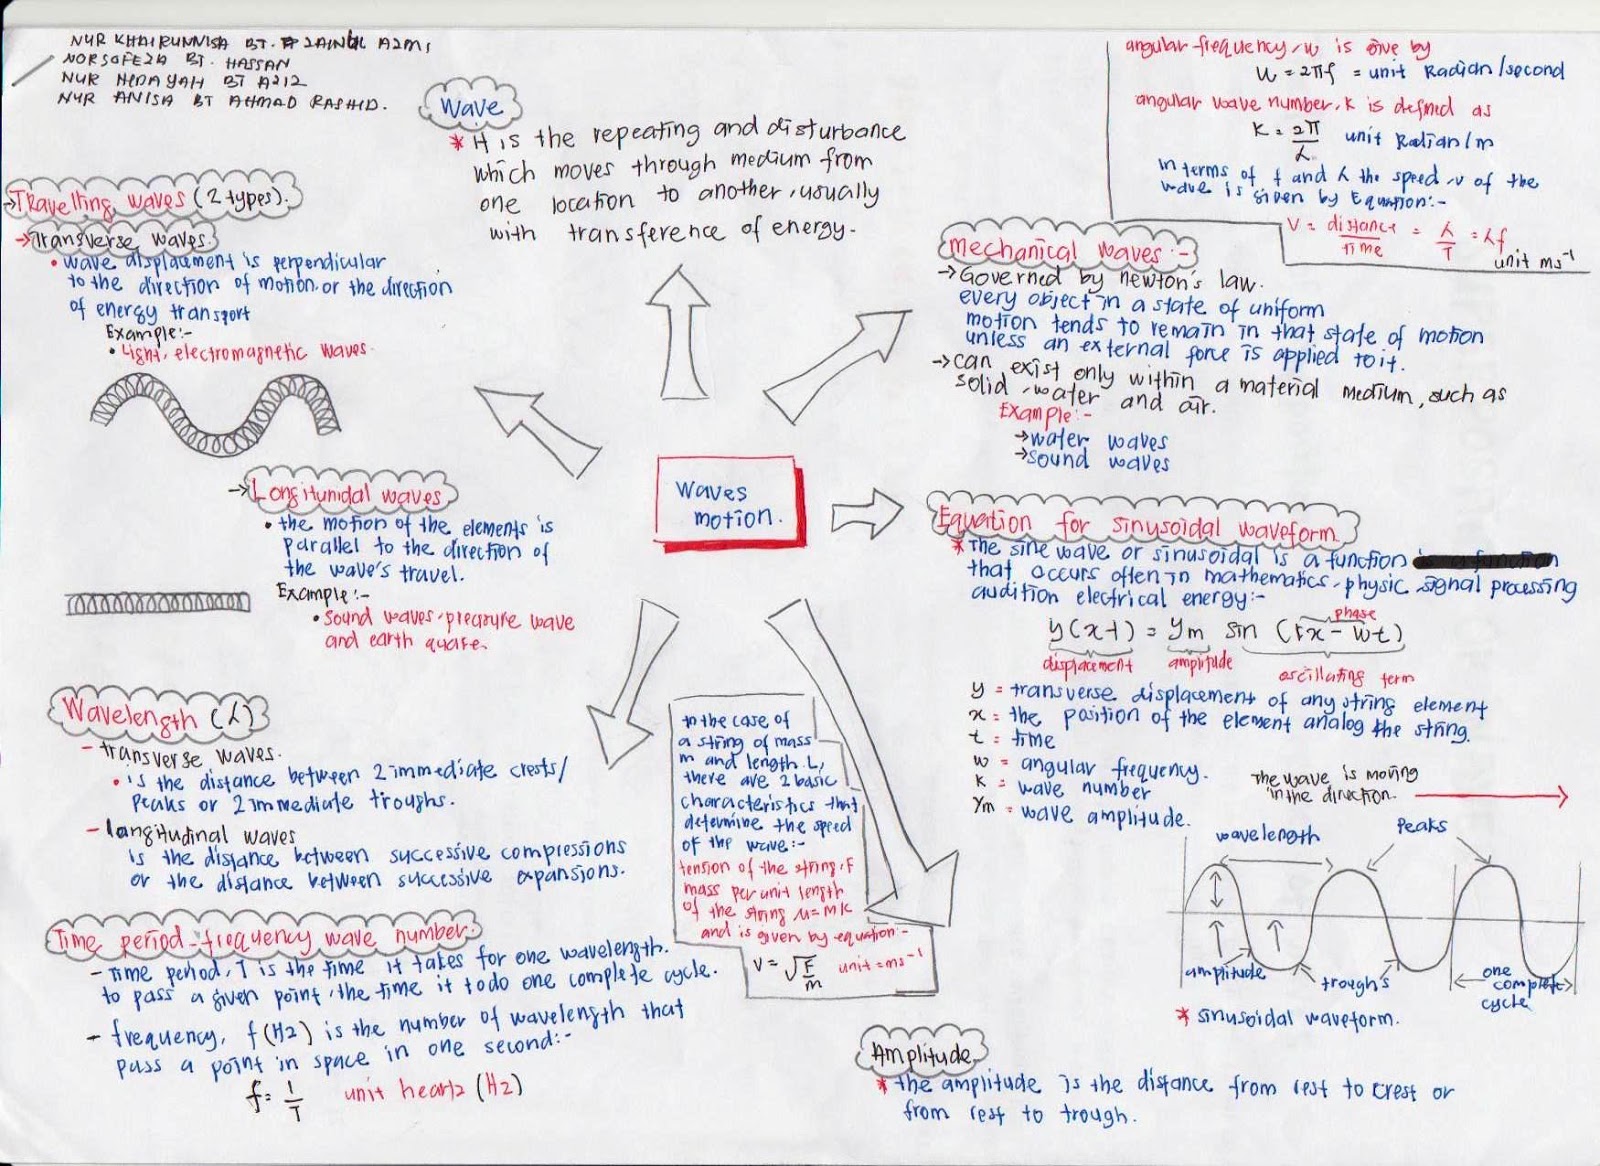 NUR KHAIRUNNISA BT. ZAINUL A2M1
NORSOFEZA BT. HASSAN
NUR HIDAYAH BT AZIZ
NUR ANISA BT AHMAD RASHID.
Wave
* It is the repeating and disturbance
which moves through medium from
one location to another, usually
with transference of energy.
angular frequency, w is give by
W = 2πf = unit Radian/second
angular wave number, k is defined as
K = 2π/λ unit Radian/m
in terms of f and λ the speed, v of the
wave is given by Equation:-
V = distance/time = λ/T = λf
unit ms⁻¹
→ Travelling waves (2 types).
→ Transverse waves.
• wave displacment is perpendicular
to the direction of motion or the direction
of energy transport
Example:-
• Light, electromagnetic waves.
→ Longitunidal waves
• the motion of the elements is
parallel to the direction of
the wave's travel.
Example:-
• sound waves, pressure wave
and earth quake.
Waves
motion.
Mechanical waves:-
→ Governed by newton's law.
every object in a state of uniform
motion tends to remain in that state of motion
unless an external force is applied to it.
→ can exist only within a material medium, such as
solid, water and air.
Example:-
→ water waves
→ sound waves
Equation for sinusoidal waveform.
* The sine wave or sinusoidal is a function
that occurs often in mathematics, physic, signal processing
audition electrical energy:-
phase
y(x t) = ym sin (kx - wt)
displacement amplitude oscillating term
y = transverse displacement of any string element
x = the position of the element analog the string.
t = time
w = angular frequency.
k = wave number
ym = wave amplitude.
The wave is moving
in the direction.
wavelength
Peaks
amplitude
trough's
one
complete
cycle
* sinusoidal waveform.
Wavelength (λ)
- transverse waves.
• is the distance between 2 immediate crests/
peaks or 2 immediate troughs.
- longitudinal waves
is the distance between successive compressions
or the distance between successive expansions.
Time period - frequency wave number.
- Time period, T is the time it takes for one wavelength.
to pass a given point, the time it to do one complete cycle.
- frequency, f (Hz) is the number of wavelength that
pass a point in space in one second:-
f = 1/T unit heartz (Hz)
In the case of
a string of mass
m and length L,
there are 2 basic
characteristics that
determine the speed
of the wave:-
tension of the string, F
mass per unit length
of the string
and is given by equation:-
V = √F/m unit = ms⁻¹
Amplitude
* the amplitude is the distance from rest to crest or
from rest to trough.